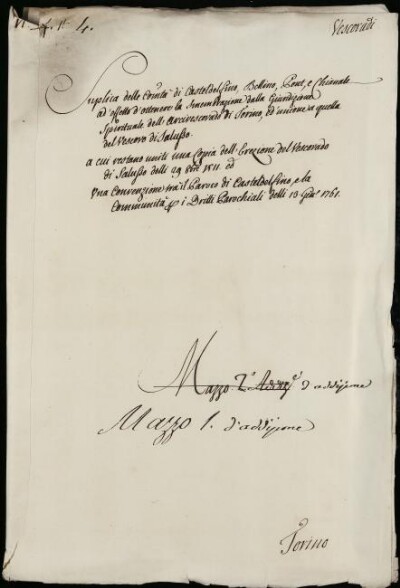 N. 4.
Vescovadi
Suplica delle Com.tà di Casteldelfino, Bellino, Pont, e Chianale
ad effetto d'ottenere la Smembrazione dalla Giurisdizione
Spirituale dell'Arcivescovado di Torino, ed unione a quella
del Vescovo di Saluzzo.
a cui restano uniti una Copia dell'Erezione del Vescovado
di Saluzzo delli 29 1511. ed
Una Convenzione tra il Parroco di Casteldelfino, e la
Communità i Dritti Parochiali delli 13 1761.
Mazzo 2.º d'addizione
Mazzo 1. d'addizione
Torino